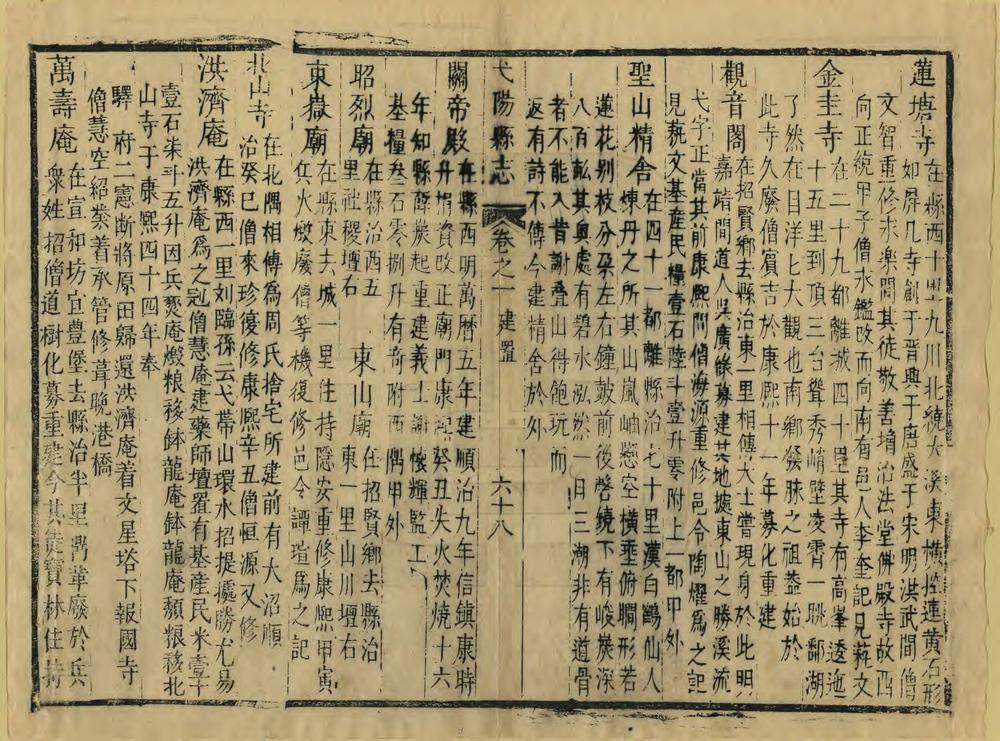 蓮塘寺 在縣西十里九川北繞大溪東橫控連黃石形
如屏几寺創于晋興于唐盛于宋明洪武間僧
文智重修永樂間其徒敬善增治法堂佛殿寺故西
向正統甲子僧水鑑改而向南有邑人李奎記見藝文
金圭寺 在二十九都離城四十里其寺有高峯逶迤
十五里到頂三台聳秀峭壁凌霄一眺鄱湖
了然在目洋匕大觀也南鄉發脉之祖葢始於
此寺久廢僧賓吉於康熙十一年募化重建
觀音閣 在招賢鄉去縣治東一里相傳大士嘗現身於此明
嘉靖間道人吳廣錄募建其地據東山之勝溪流
弋字正當其前康熙間僧海源重修邑令陶燿爲之記
見藝文基産民糧壹石陸斗壹升零附上一都甲外
聖山精舍 在四十一都離縣治七十里漢白鷗仙人
煉丹之所其山嵐岫懸空橫垂俯瞯形若
蓮花别枝分朶左右鐘皷前後啓繞下有峻㟁深
八百訟其奥處有碧水泓然一日三潮非有道骨
者不能入昔謝叠山得飽玩而
返有詩不傳今建精舍於外
弋陽縣志 卷之一 建置 六十八
關帝殿 在縣西明萬曆五年建順治九年信鎮康時
升捐資改正廟門康熙癸丑失火焚燒十六
年知縣譚㷆起重建義士謝㥄輝監工
基糧叁石零捌升有奇附西隅甲外
昭烈廟 在縣治西五里社稷壇右 東山廟 在招賢鄉去縣治東一里山川壇右
東嶽廟 在縣東去城一里住持隱安重修康熙甲寅
兵火燬廢僧等機復修邑令譚瑄爲之記
北山寺 在北隅相傳爲周氏捨宅所建前有大沼順
治癸巳僧來珍復修康熙辛丑僧恒源又修
洪濟庵 在縣西一里刘臨孫云弋帯山環水招提擄勝尤易
洪濟庵爲之冠僧慧庵建藥師壇置有基産民米壹十
壹石柒斗五升因兵燹庵燬粮移鉢龍庵鉢龍庵頽粮移北
山寺于康熙四十四年奉
驛 府二憲断將原田歸還洪濟庵着文星塔下報國寺
僧慧空紹業着承管修葺晩港橋
萬壽庵 在宣和坊宜豊堡去縣治半里焉葦廢於兵
衆姓招僧道樹化募重建今其徒寶林住持